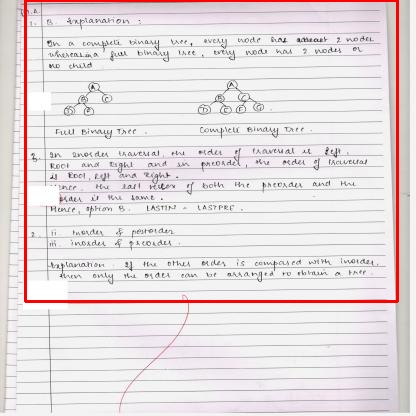 Q1.A
1. B. Explanation :
In a complete binary tree, every node has atleast 2 nodes
whereas in a full binary tree, every node has 2 nodes or
no child.
A A
B C B C
D E D E F G
Full Binary Tree. Complete Binary Tree.
B. In Inorder traversal, the order of traversal is left,
Root and Right and in preorder, the order of traversal
is Root, left and Right.
Hence, the last of both the preorder and the
order is the same.
Hence, option B. LASTIN = LASTPRE.
2. ii. inorder & postorder
iii. inorder & preorder.
Explanation: If the other order is compared with inorder,
then only the order can be arranged to obtain a tree.